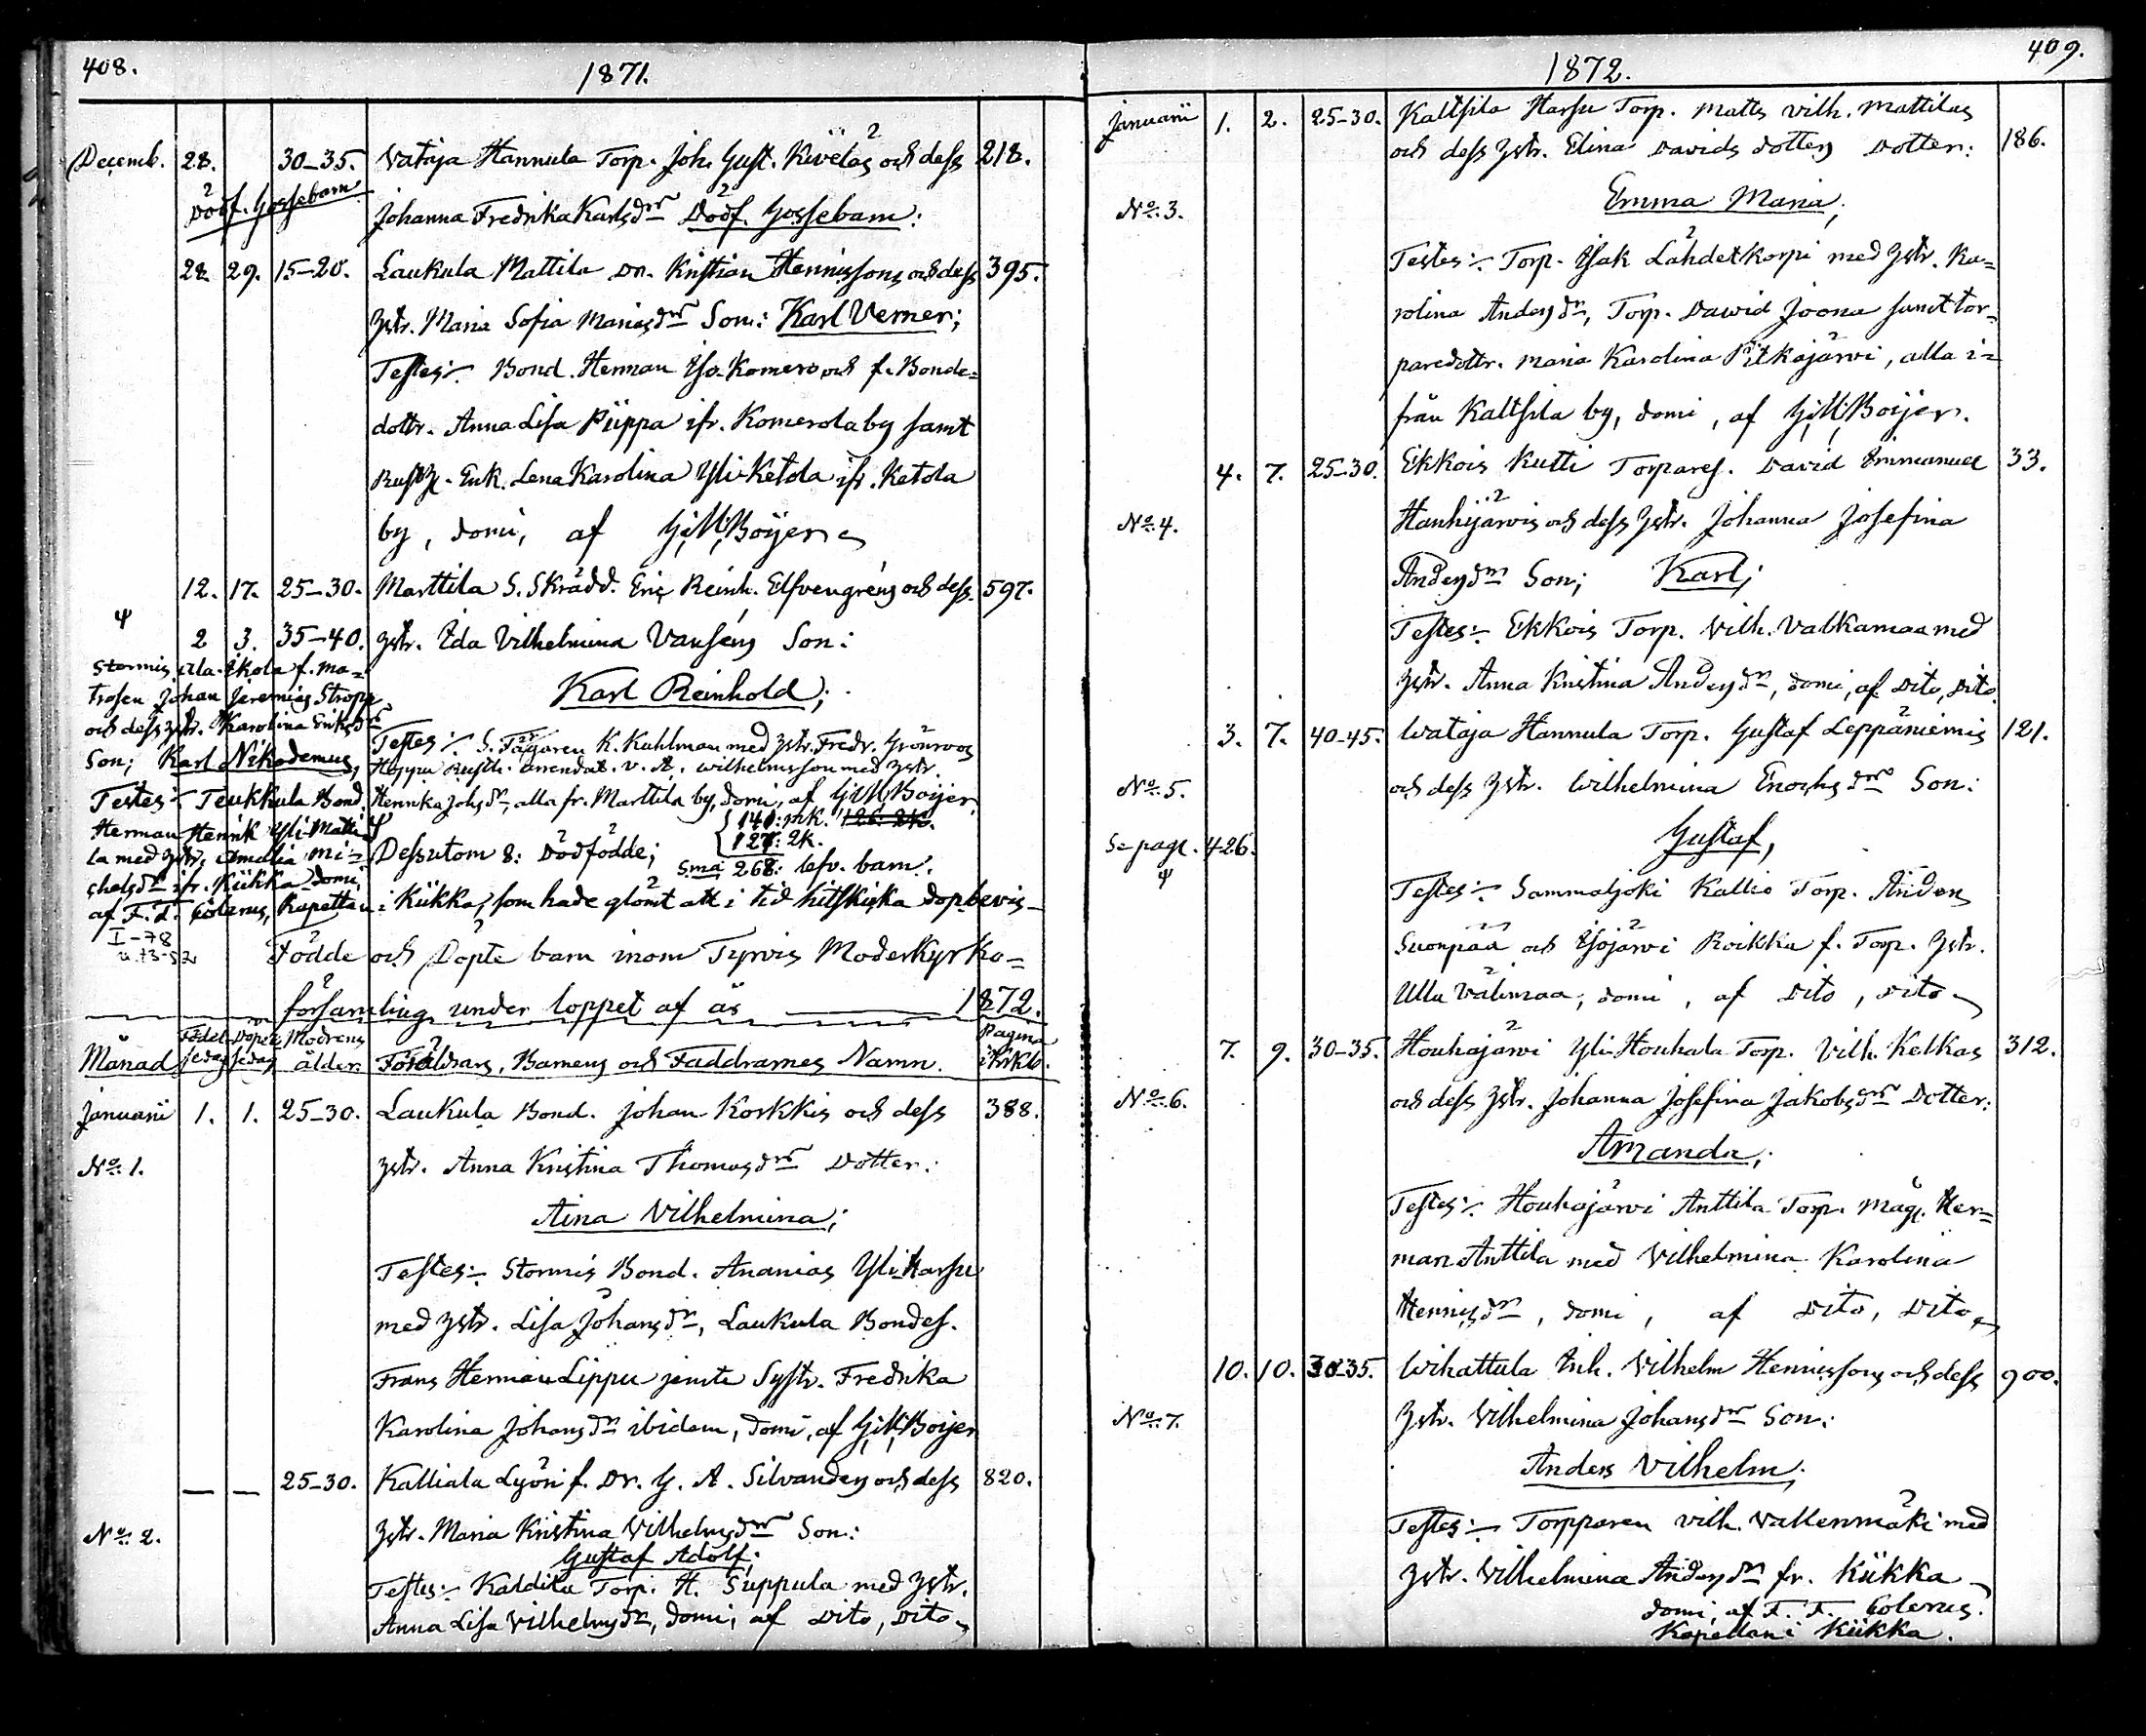 408.
1871.
Decemb. 28. 30-35. Vataja Hannula Torp. Joh. Gust. Kivelas och dess 218.
Dödf. Gossebarn Johanna Fredrika Karlsdr Dödf. Gossebarn:
28. 29. 15-20. Laukula Mattila Dr. Kristian Henrissons och dess 395.
hstr. Maria Sofia Mariasdr Son: Karl Verner;
Testes: Bond. Herman Iso-Komero och f. Bonde=
dottr. Anna Lisa Piippa ifr. Komerola by samt
Rusth. Enk. Lena Karolina Yli-Ketola ifr. Ketola
by, domi, af G:M:Boijer
12. 17. 25-30. Marttila S. Skrädd. Eric Reinh. Elfvengréns och dess 597.
ψ 2 3. 35-40. hstr. Ida Vilhelmina Vanséns Son:
Karl Reinhold;
Testes: S. Fägaren K. Kuhlman med hstr. Fredr. Grönroos
Hoppu Rusth. arrendat. v. A. Wilhelmsson med hstr.
Henrika Johsdr, alla fr. Marttila by, domi, af G:M:Boijer
140: mk. 126: 2k.
Dessutom 8: Dödfödde; 127: 2k.
S:ma 268: lefv. barn.
Stormis Ala-Ikola f. Ma=
trosen Johan Jeremias Stropp
och dess hstr. Karolina Eriksdr
Son; Karl Nikodemus,
Testes: Teukkula Bond.
Herman Henrik Yli-Matti
la med hstr. Amalia Mi=
chelsdr ifr. Kiikka domi,
af F. F. Colerus, Kapellan i Kiikka, som hade glömt att i tid hitskicka dopbevis
I-78
u.73-52
Födde och Döpte barn inom Tyrvis Moderkyrko=
församling under loppet af år 1872.
Månad Födel=sedag Döpelsedag Modrens ålder. Föräldrars, Barnens och Faddrarnes Namn. Pagina i Kirkb.
Januarii 1. 1. 25-30. Laukula Bond. Johan Korkkis och dess 388.
No: 1. hstr. Anna Kristina Thomasdr Dotter:
Aina Vilhelmina;
Testes: Stormis Bond. Ananias Yli-Harsu
med hstr. Lisa Johansdr, Laukula Bondes.
Frans Herman Lippu jemte Systr. Fredrika
Karolina Johansdr ibidem, domi, af G:M:Boijer
— — 25-30. Kalliala Lyöri f. Dr. G. A. Silvanders och dess 820.
No: 2. hstr. Maria Kristina Vilhelmsdr Son:
Gustaf Adolf;
Testes: Kaldila Torp. H. Suppula med hstr.
Anna Lisa Vilhelmsdr, domi, af Dito, Dito
409.
1872.
Januarii 1. 2. 25-30. Kaltsila Harsu Torp. Matts Vilh. Mattilas
och dess hstr. Elina Davids dotters Dotter: 186.
No: 3. Emma Maria;
Testes: Torp. Isak Lähdetkorpi med hstr. Ka=
rolina Andersdr, Torp. David Joona samt tor=
paredottr. Maria Karolina Pitkäjärvi, alla i=
från Kaltsila by, domi, af G:M:Boijer.
4. 7. 25-30. Ekkois Kutti Torpares. David Emmanuel 33.
No: 4. Hanhijärvis och dess hstr. Johanna Josefina
Andersdr Son; Karl;
Testes: Ekkois Torp. Vilh. Valkamaa med
hstr. Anna Kristina Andersdr, domi, af Dito, Dito
3. 7. 40-45. Wataja Hannula Torp. Gustaf Leppäniemis 121.
No: 5. och dess hstr. Wilhelmina Enochsdr Son:
Se pag. 426. Gustaf,
ψ
Testes: Sammaljoki Kallio Torp. Anders
Suonpää och Isojärvi Roikka f. Torp. hstr.
Ulla Välimaa, domi, af Dito, Dito
7. 9. 30-35. Houhajärvi Yli-Houhala Torp. Vilh. Kelkas 312.
No: 6. och dess hstr. Johanna Josefina Jakobsdr Dotter:
Amanda;
Testes: Houhajärvi Anttila Torp. Måg. Her=
man Anttila med Vilhelmina Karolina
Henrisdr, domi, af Dito, Dito
10. 10. 30-35. Wihattula Inh. Vilhelm Henrissons och dess 900.
No: 7. hstr. Vilhelmina Johansdr Son:
Anders Vilhelm;
Testes: Torpparen Vilh. Vallenmäki med
hstr. Vilhelmina Andersdr fr. Kiikka
domi, af F. F. Colerus.
Kapellan i Kiikka.